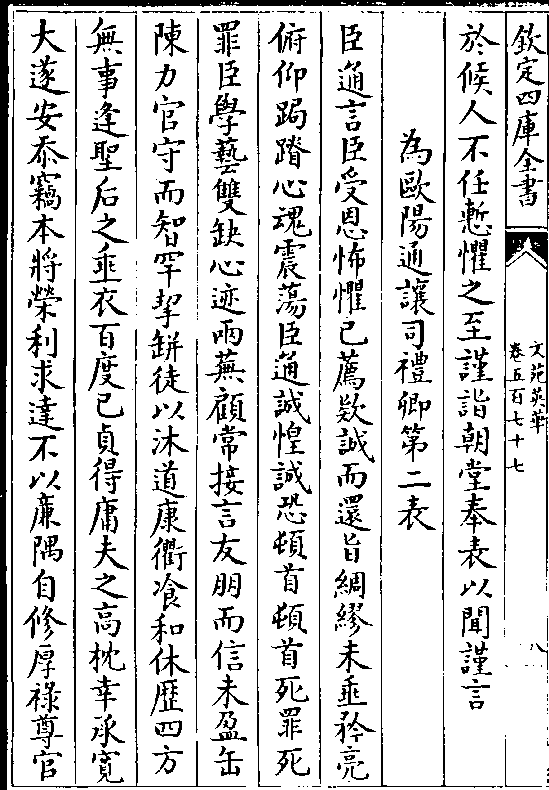 欽定四庫全書
文苑英華
卷五百七十七
八
於候人不任慙懼之至謹詣朝堂奉表以聞謹言
為歐陽通讓司禮卿第二表
臣通言臣受恩怖懼已薦欵誠而還旨綢繆未垂矜亮
俯仰跼蹐心魂震蕩臣通誠惶誠恐頓首頓首死罪死
罪臣學藝雙缺心迹兩蕪顧常接言友朋而信未盈缶
陳力官守而智罕挈缾徒以沐道康衢飡和休歴四方
無事逢聖后之垂衣百度已貞得庸夫之高枕幸承寛
大遂安忝竊本將榮利求達不以廉隅自修厚祿尊官